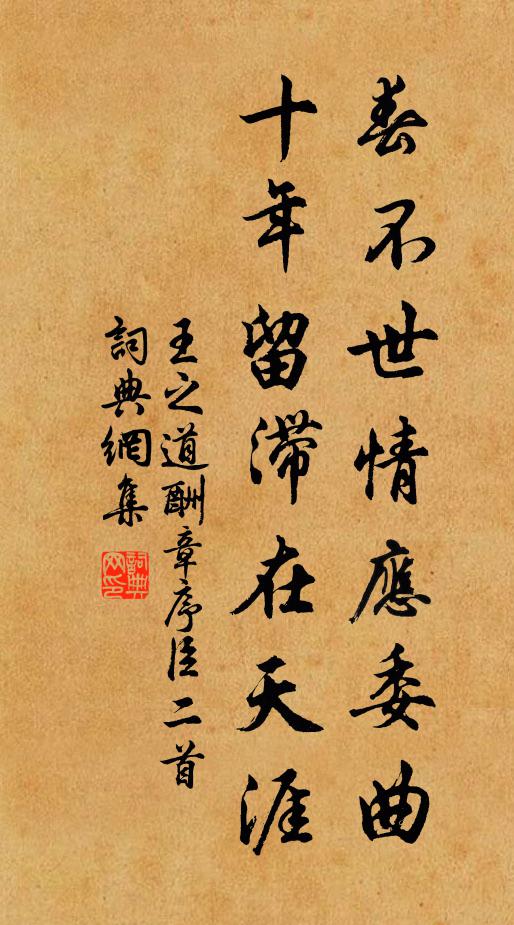 春不世情應委曲
十年留滯在天涯
王之道酬章序臣二首
詞典網集
詞典網印